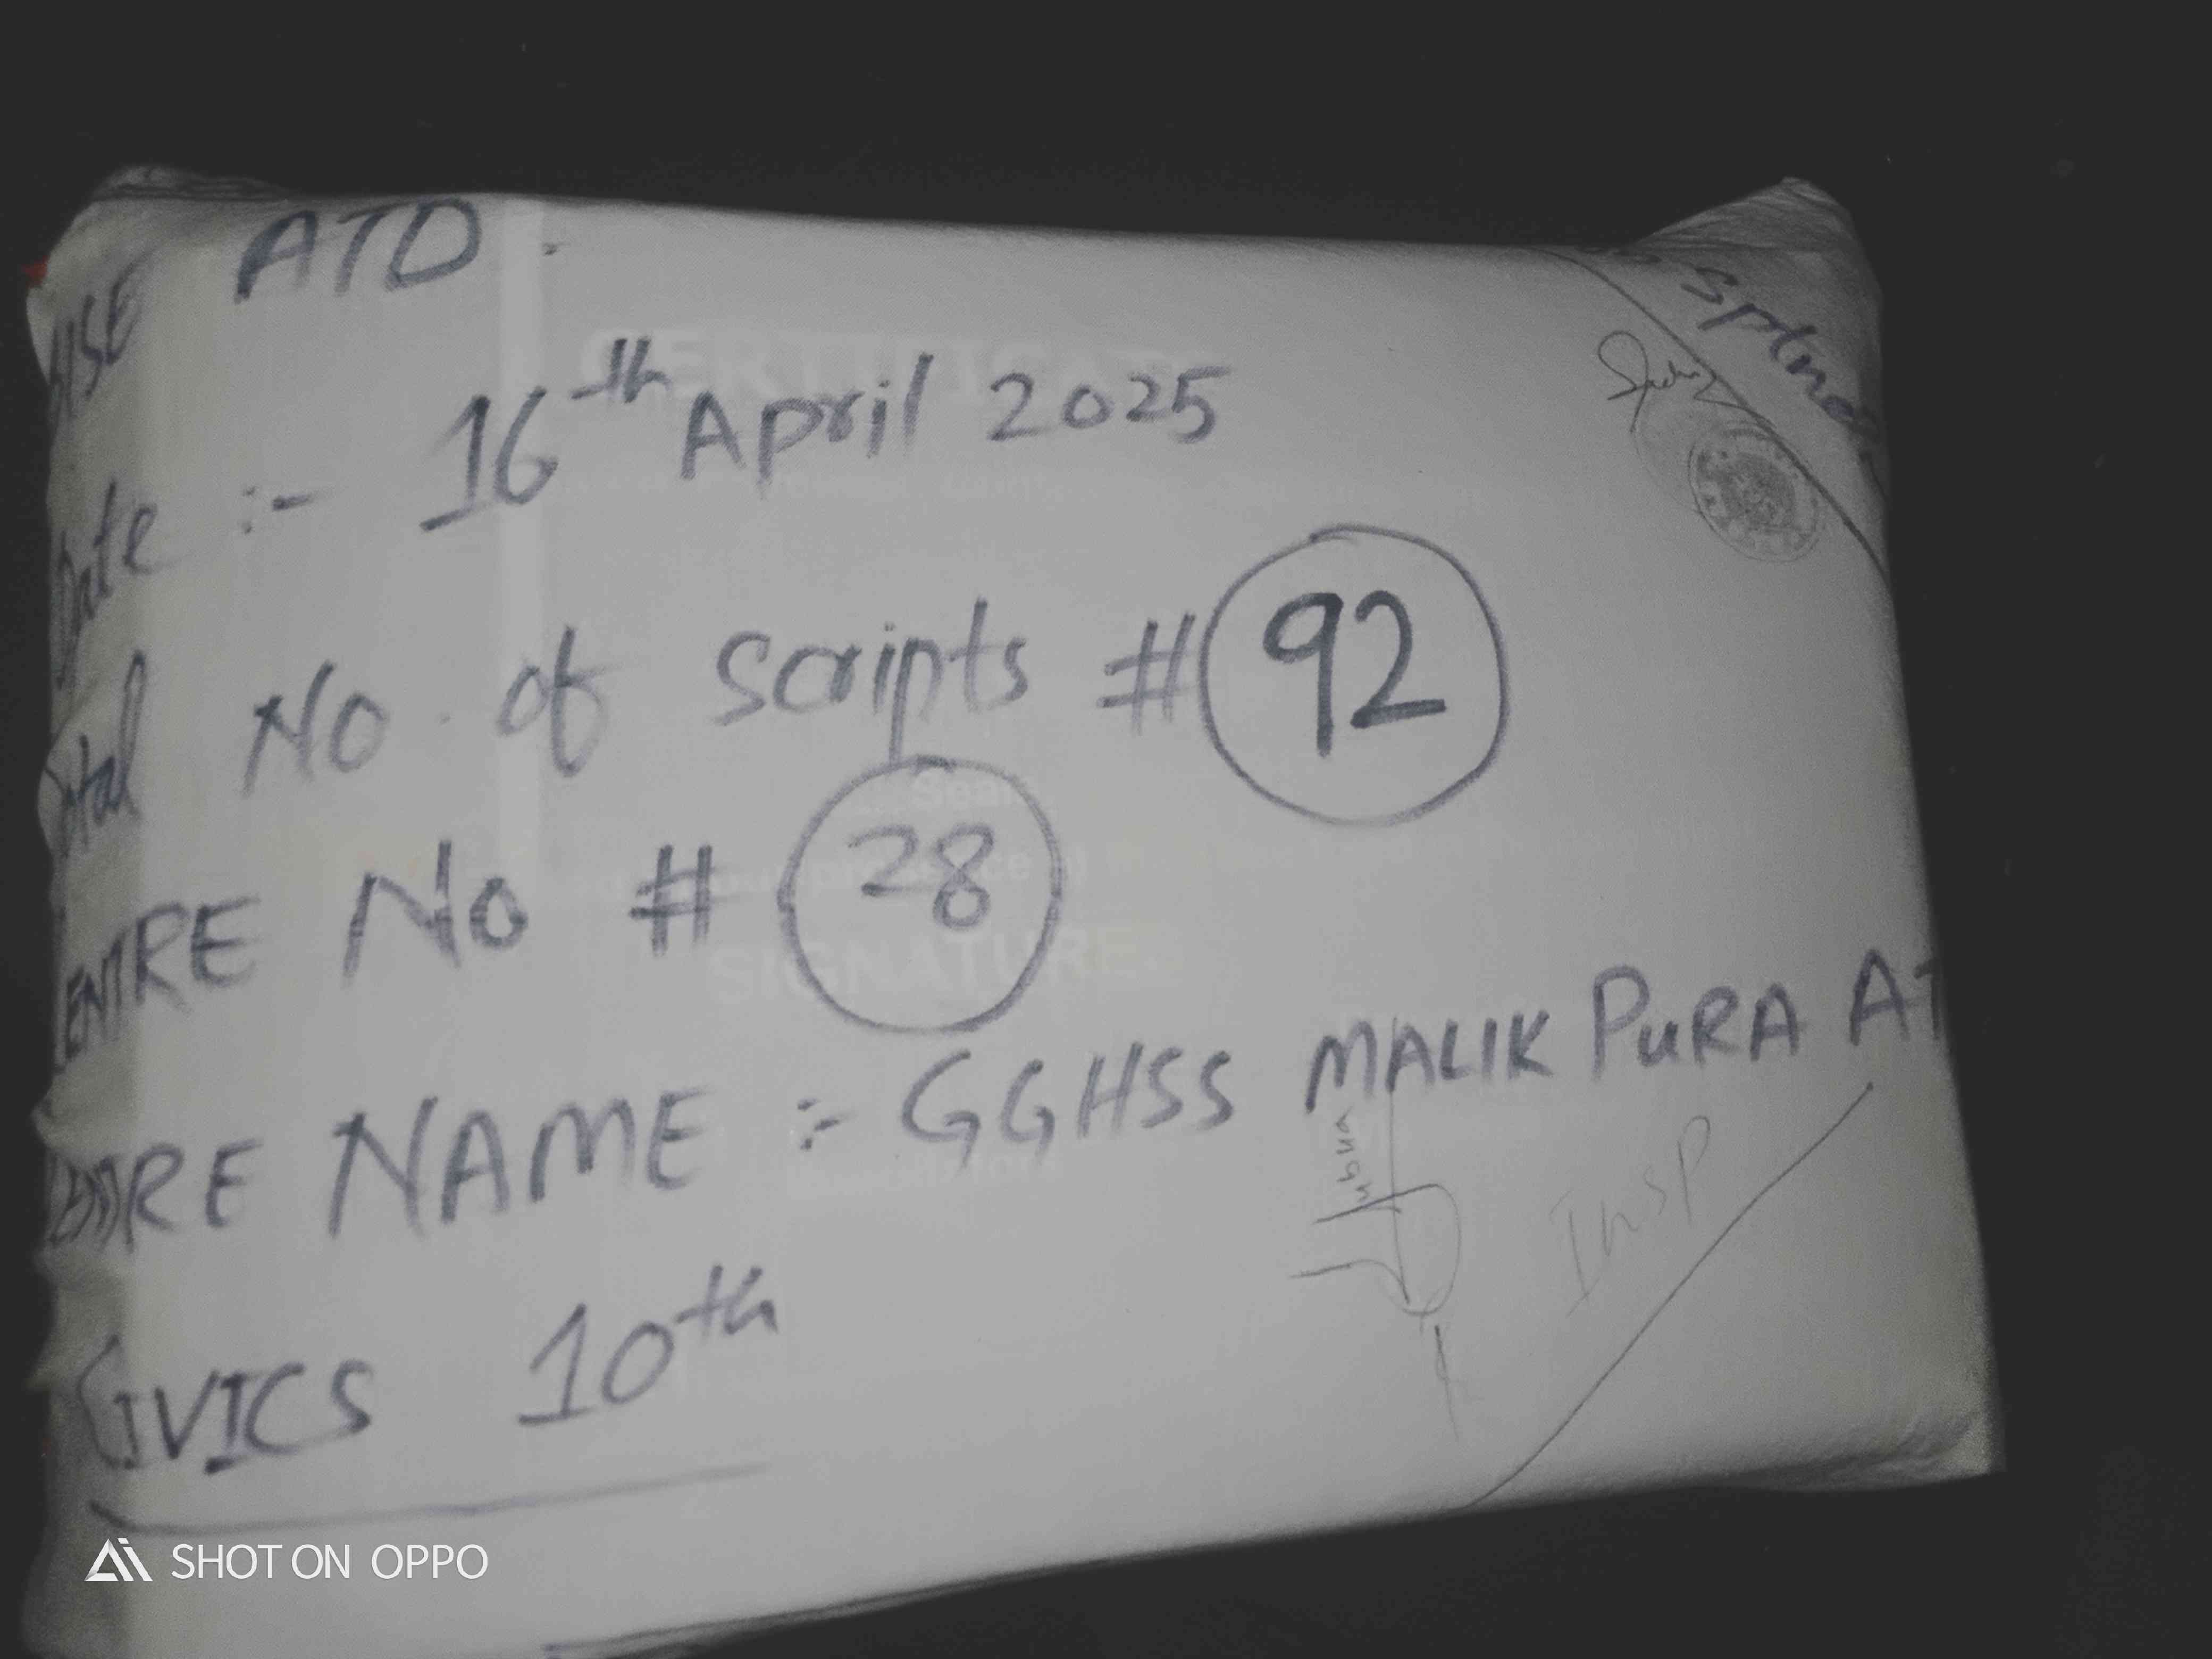 ATD
Date :- 16th April 2025
Total No. of scripts # 92
CENTRE No # 28
CENTRE NAME :- GGHSS MALIK PURA AT
CIVICS 10th
Insp
SHOT ON OPPO